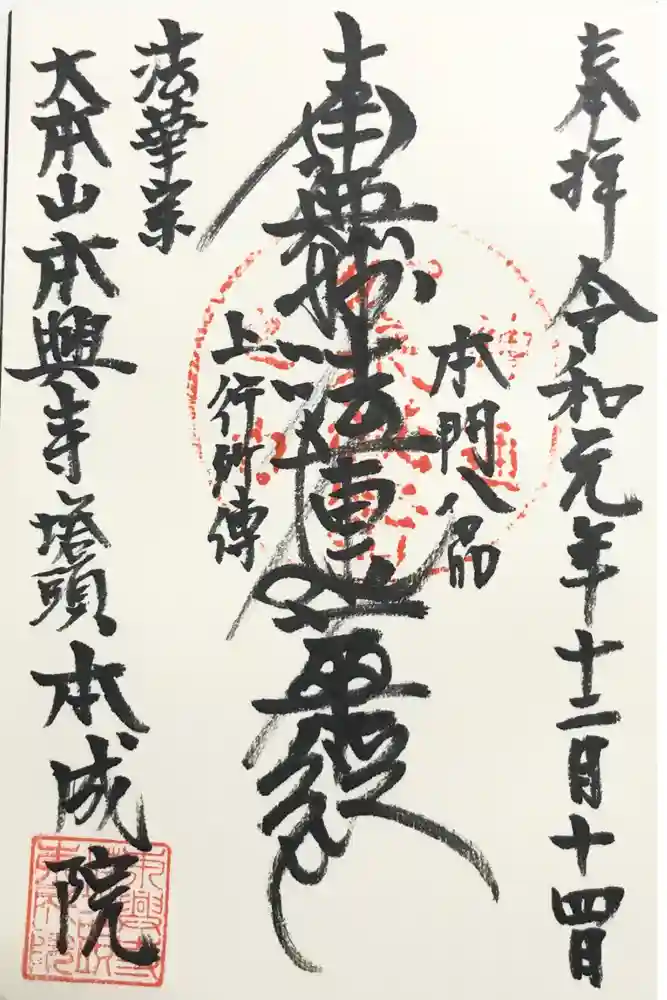 奉拝 令和元年十二月十四日
本門八品
南無妙法蓮華経
上行所傳
法華宗
大本山本興寺塔頭 本成院